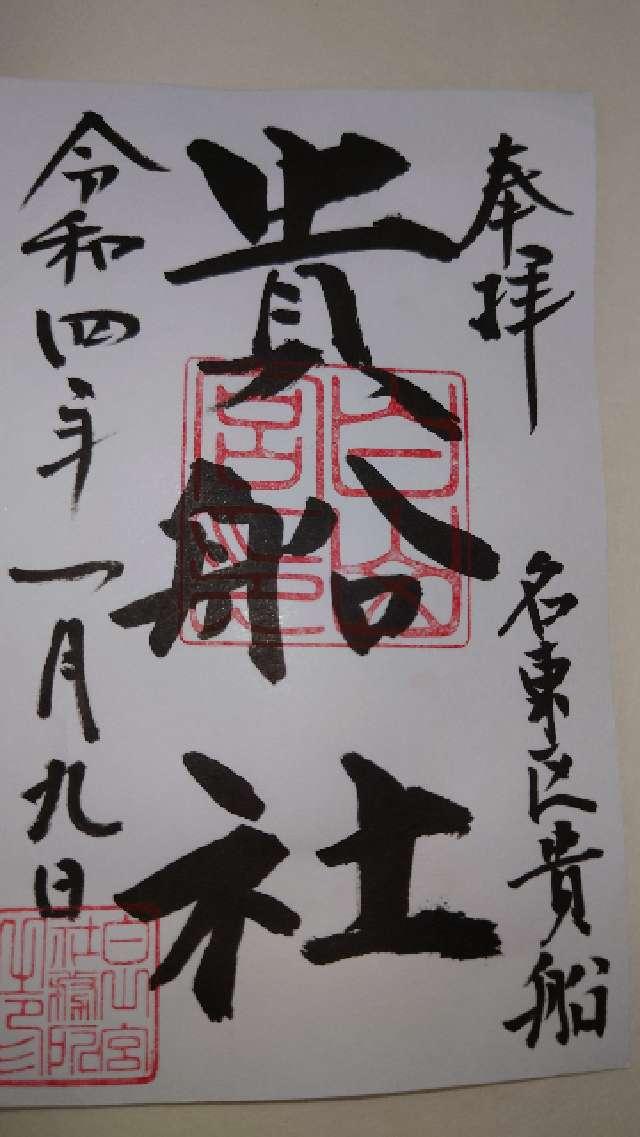 奉拝
名東区貴船
貴船社
令和四年一月九日
白山
宮印
白山宮
社務所
之印